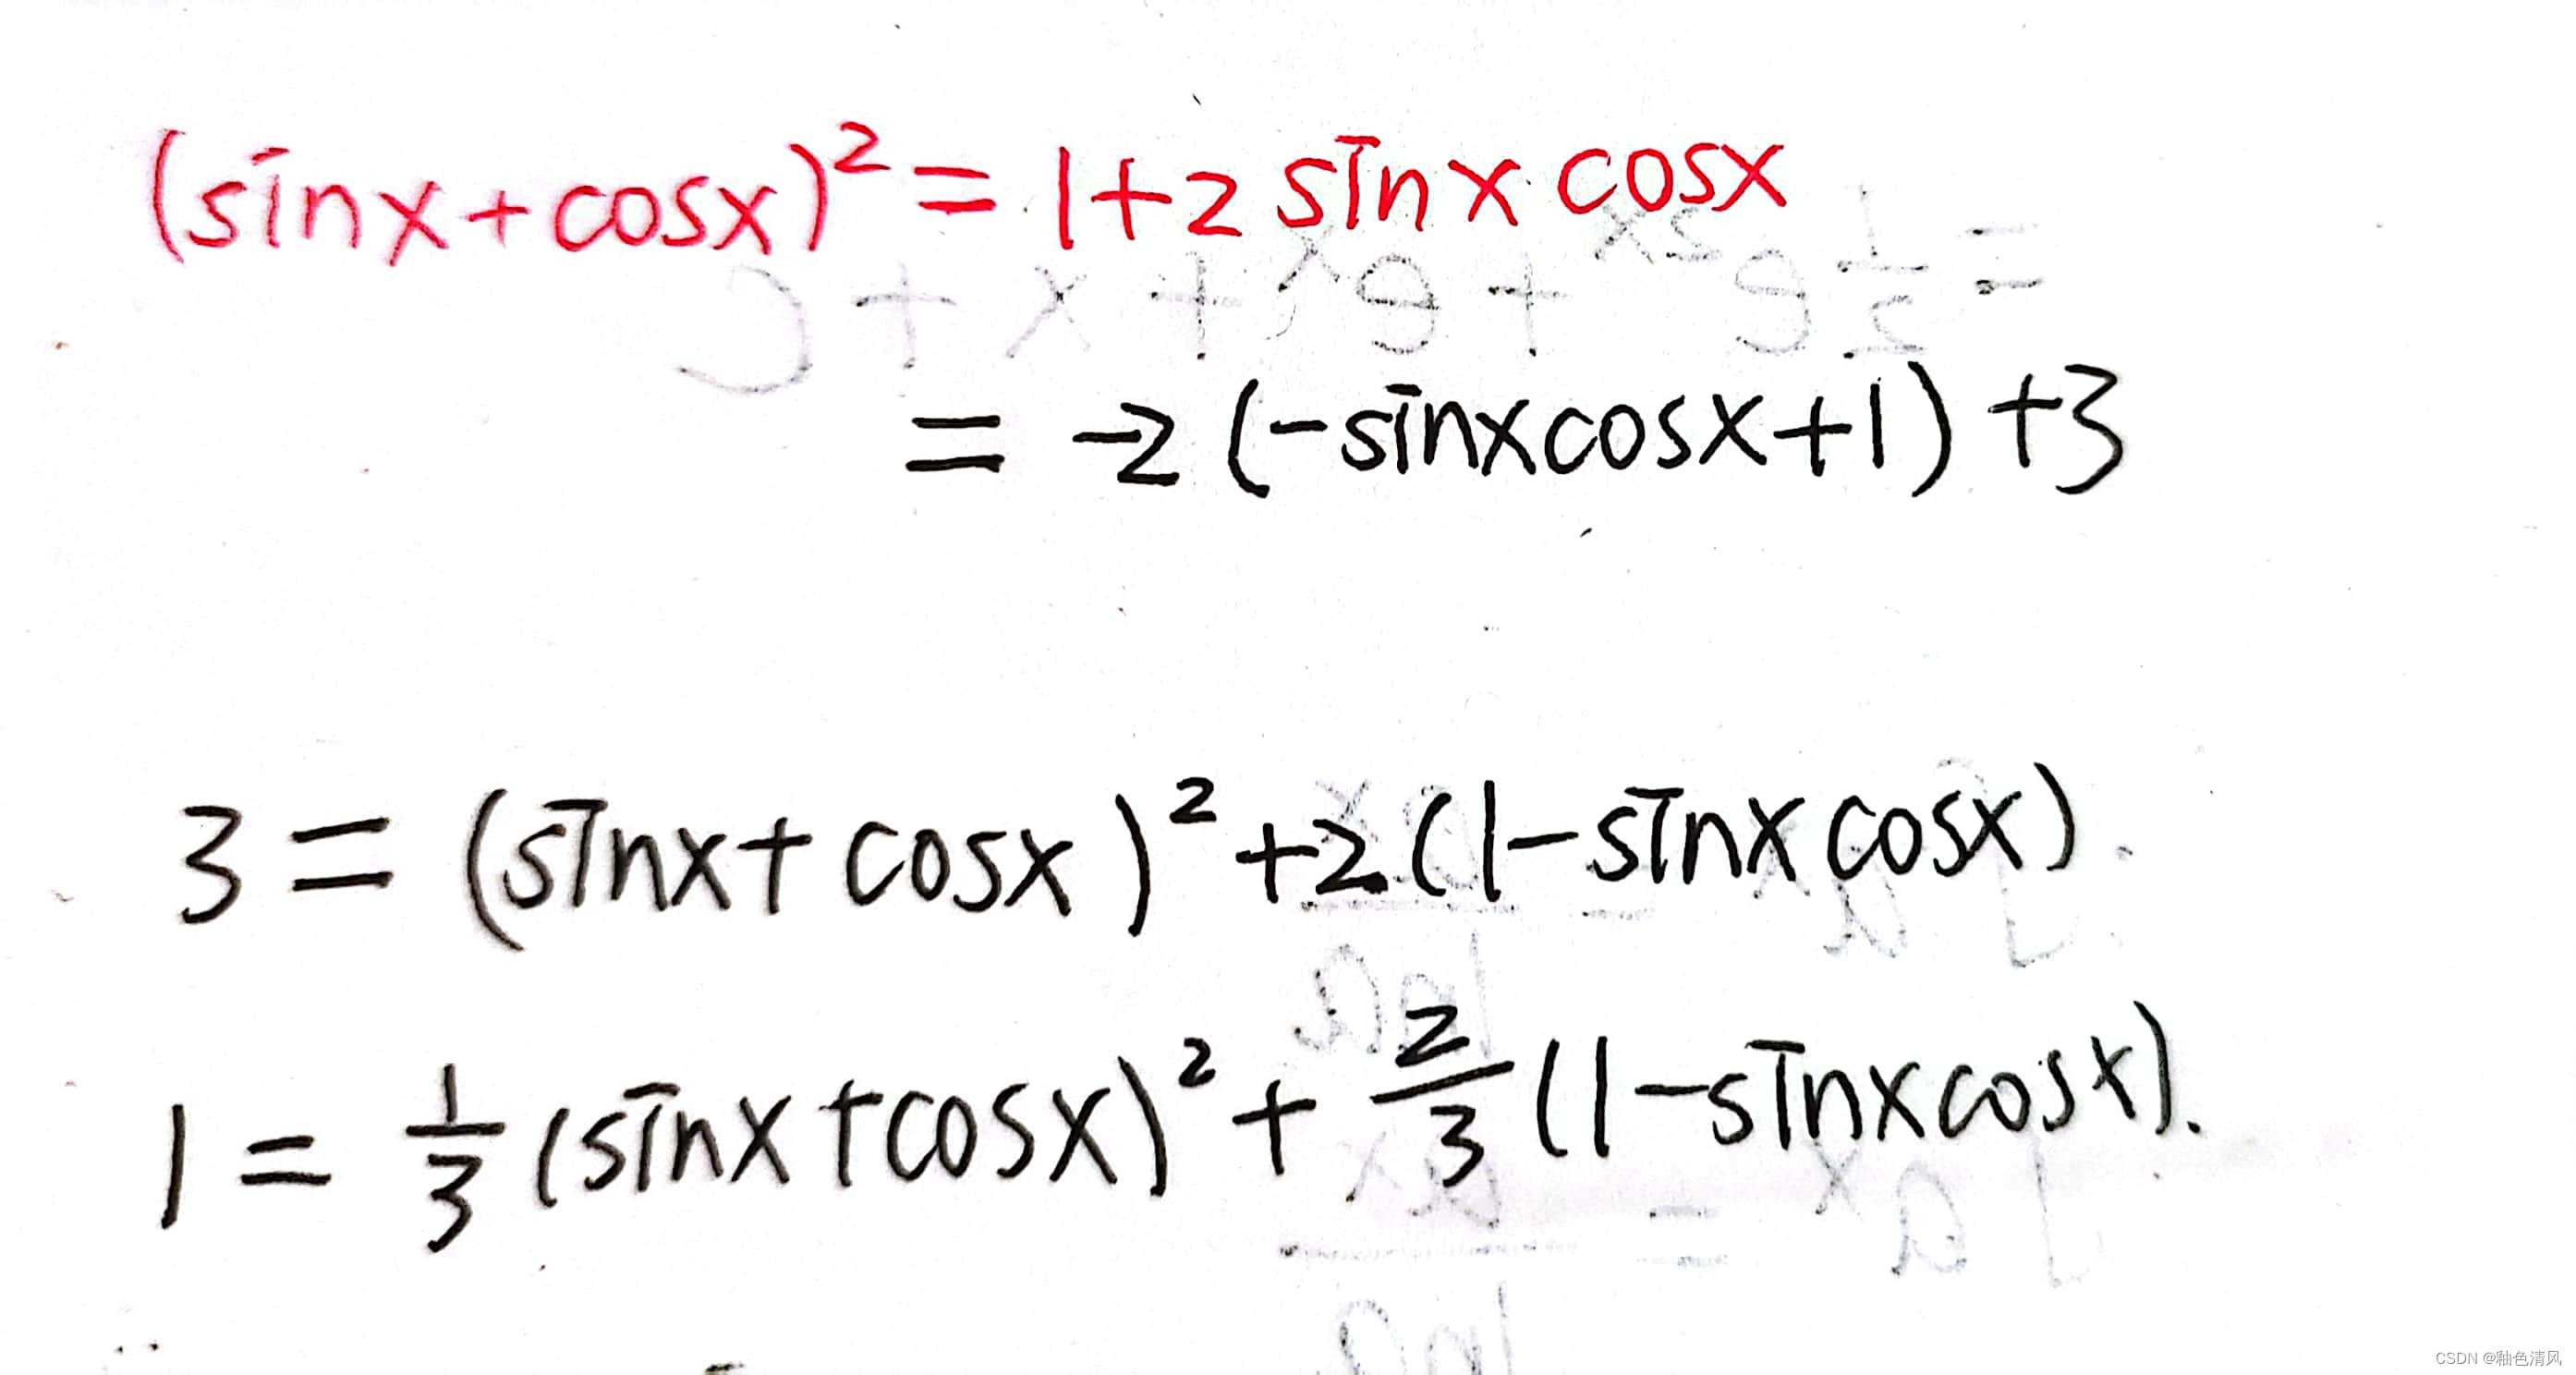 (sinx+cosx)²=1+2sinxcosx
=-2(-sinxcosx+1)+3
3=(sinx+cosx)²+2(1-sinxcosx).
1=1/3(sinx+cosx)²+2/3(1-sinxcosx).
CSDN @釉色清风